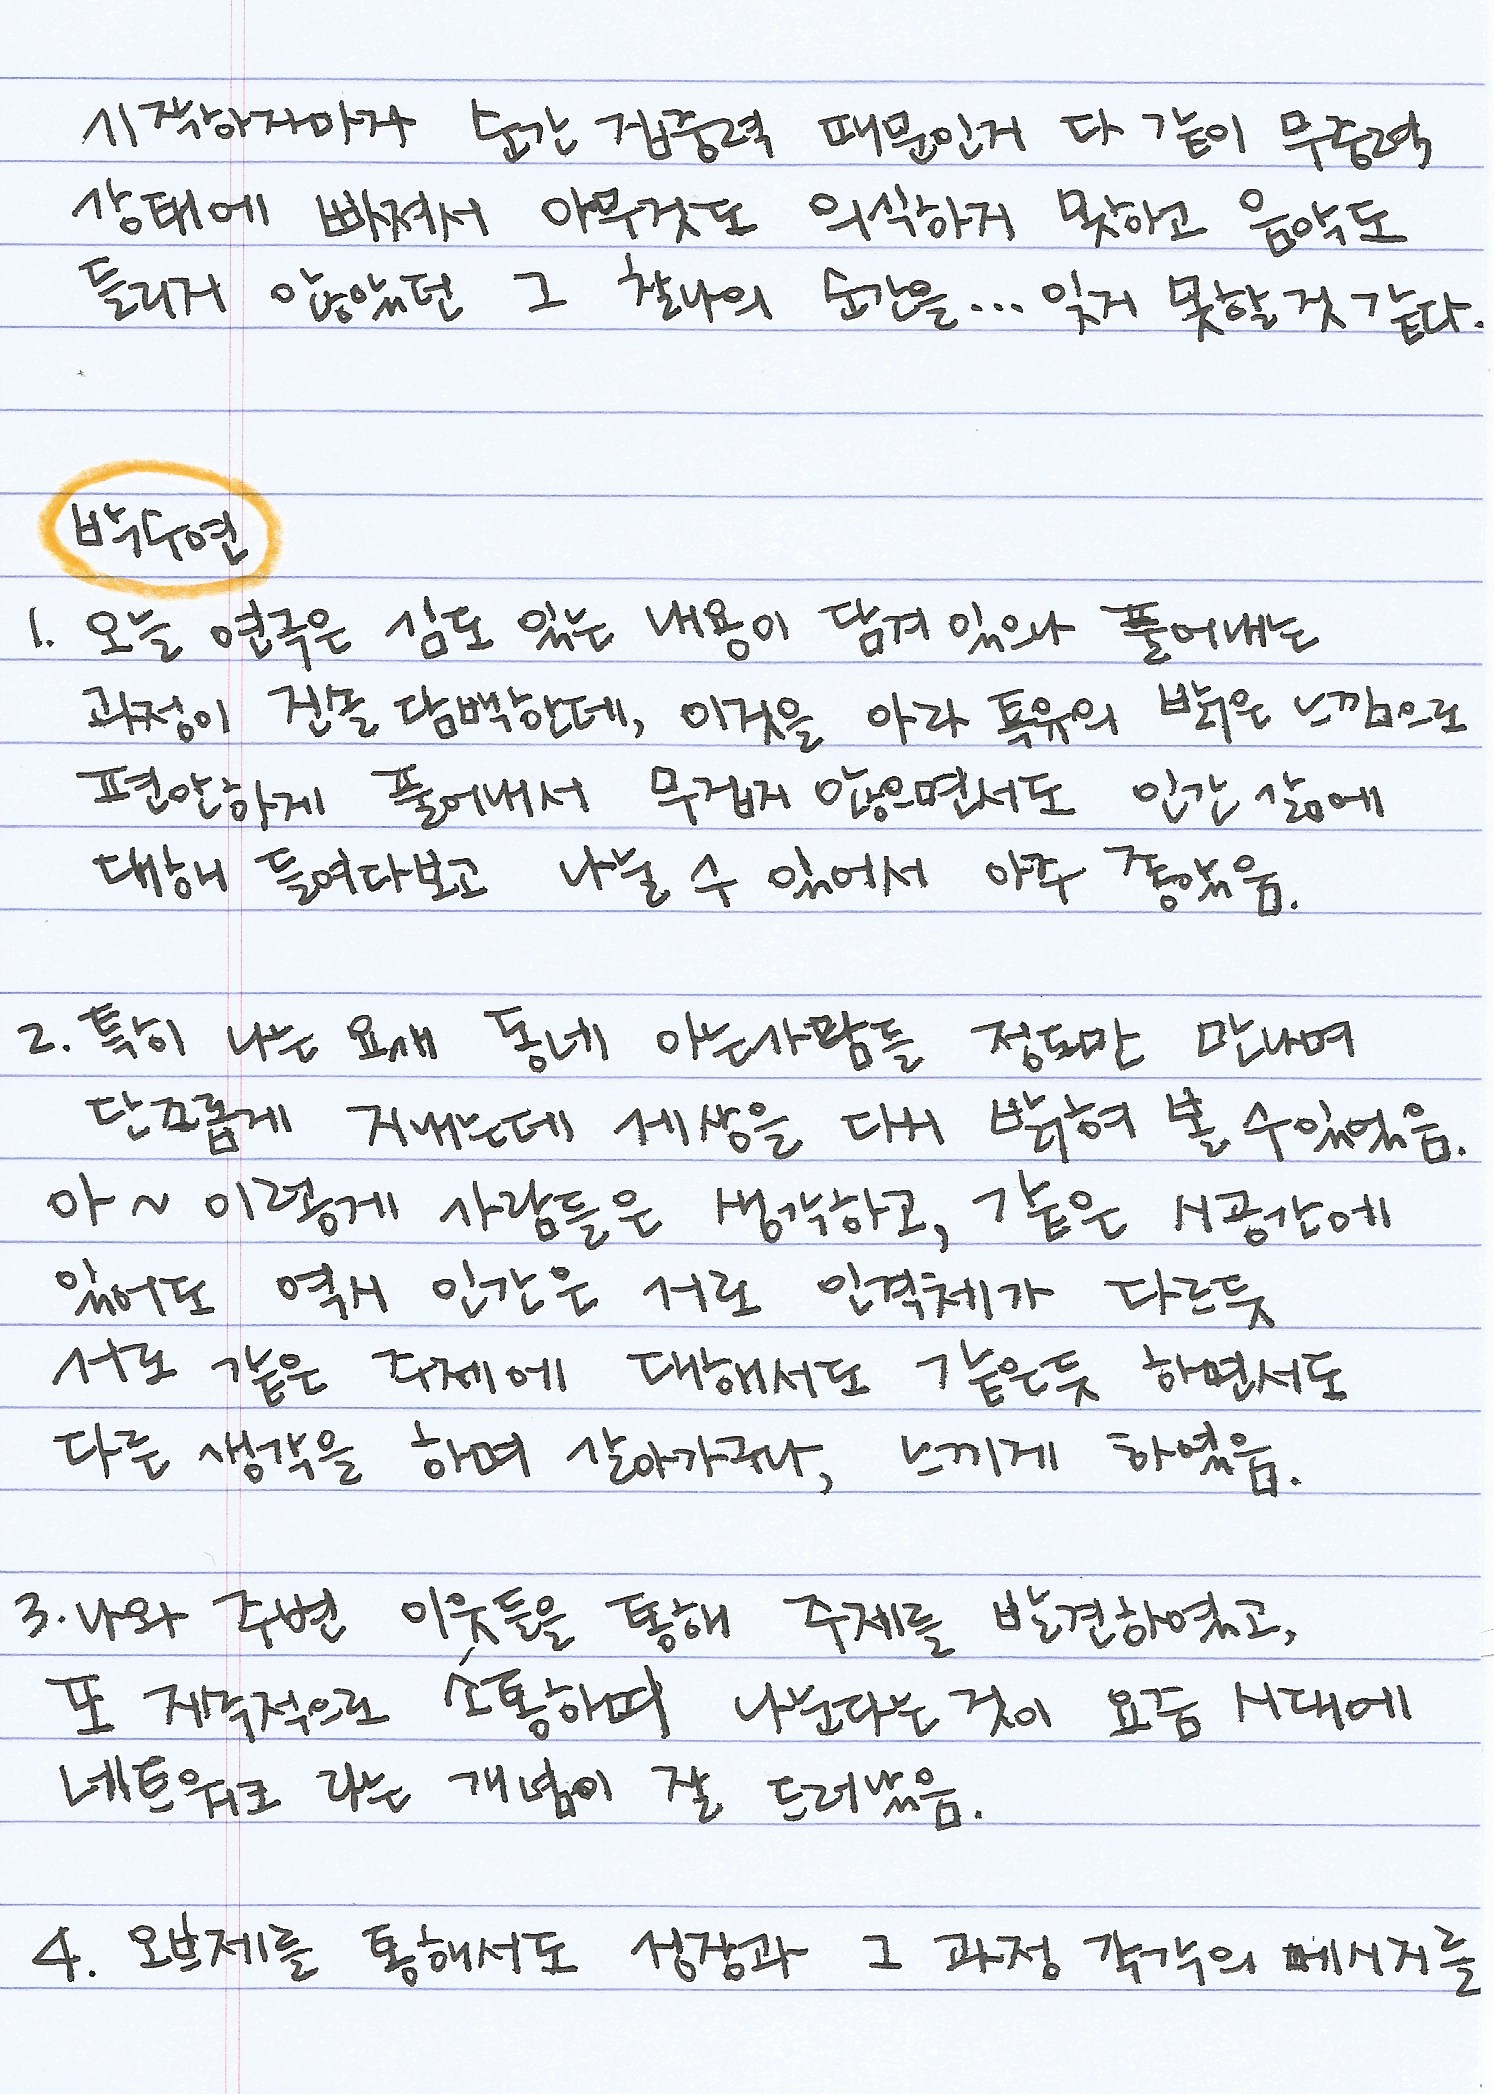 시작하자마자 순간 집중력 때문인지 다 같이 무중력
상태에 빠져서 아무것도 의식하지 못하고 음악도
들리지 않았던 그 찰나의 순간을... 잊지 못할 것 같다.
박수연
1. 오늘 연극은 심도 있는 내용이 담겨 있으나 풀어내는
과정이 진솔 담백한데, 이것을 아라 특유의 밝은 느낌으로
편안하게 풀어내서 무겁지 않으면서도 인간 삶에
대해 들여다보고 나눌 수 있어서 아주 좋았음.
2. 특히 나는 요새 동네 아는사람들 정도만 만나며
단조롭게 지내는데 세상을 다시 밝혀 볼 수있었음.
아~ 이렇게 사람들은 생각하고, 같은 시공간에
있어도 역시 인간은 서로 인격체가 다르듯
서로 같은 주제에 대해서도 같은듯 하면서도
다른 생각을 하며 살아가구나, 느끼게 하였음.
3. 나와 주변 이웃들을 통해 주제를 발견하였고,
또 지속적으로 소통하며 나눈다는 것이 요즘 시대에
네트워크 라는 개념이 잘 드러났음.
4. 오브제를 통해서도 성장과 그 과정 각각의 메시지를